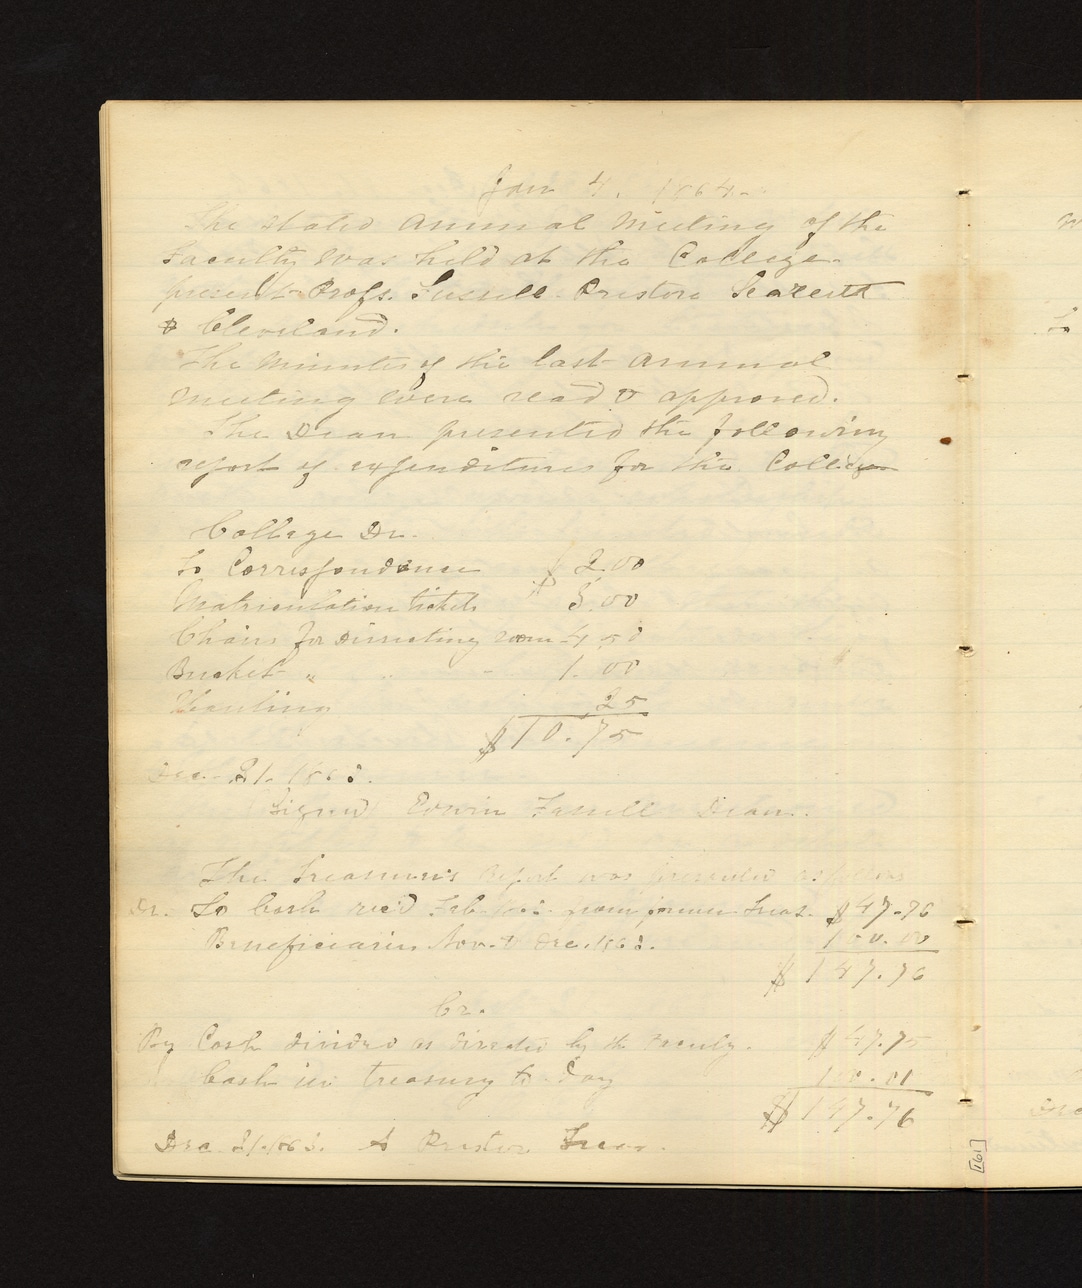 Jan 4. 1864.
The stated Annual Meeting of the
Faculty was held at the College.
present Profs. Fussell Preston Scarlett
& Cleveland.
The Minutes of the last Annual
Meeting were read & approved.
The Dean presented the following
report of expenditures for the College
College Dr.
To Correspondence $2.00
Matriculation tickets 3.00
Chairs for Dissecting room 4.50
Bucket " " - 1.00
Hauling .25
$10.75
Dec. 31. 1863.
Signed Edwin Fussell Dean.
The Treasurer's Report was presented as follows
Dr. To Cash rec'd Feb. from former Treas. $47.76
Beneficiaries Nov. & Dec. 1863. 100.00
$147.76
Cr.
By Cash divided as directed by the Faculty. $47.75
Cash in treasury to-day 100.01
$147.76
Dec 31. 1863. A Preston Treas.
[161]